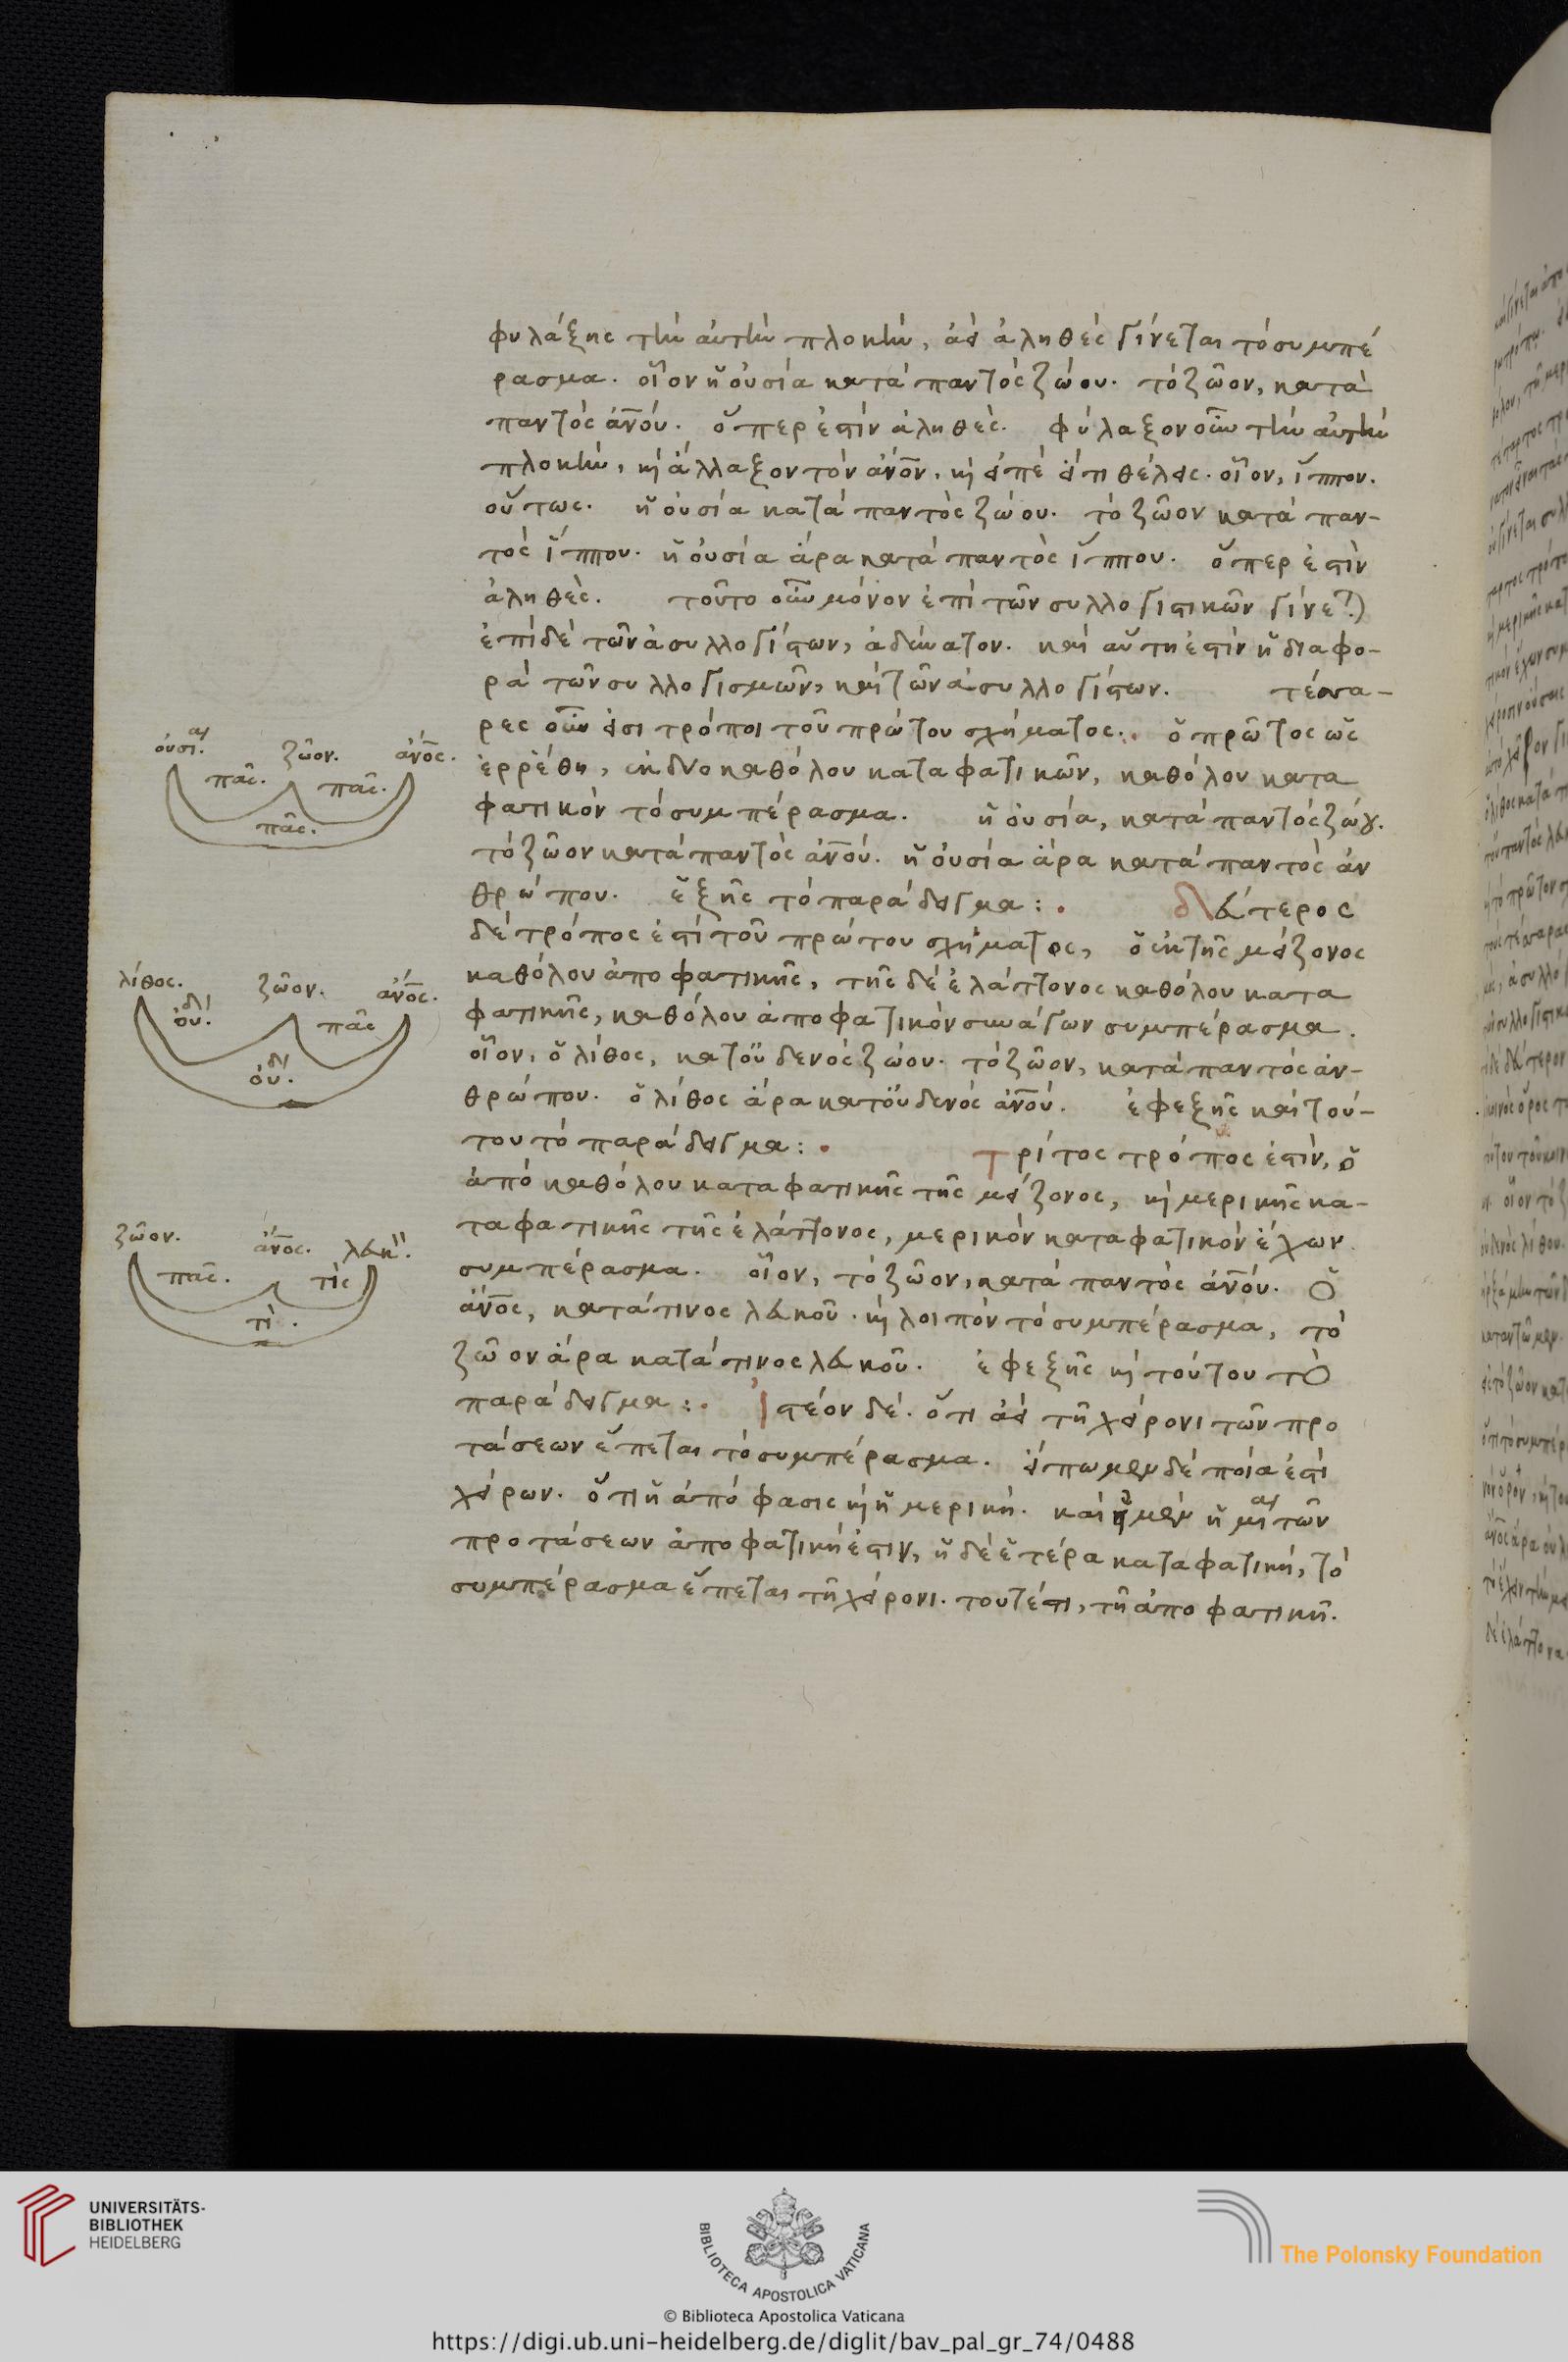 φυλάξης τὴν ἀυτὴν πλοκὴν, ἀεὶ ἀληθὲς γίνεται τὸ συμπέ
ρασμα. οἷον ἡ ὀυσία κατὰ παντὸς ζώου. τὸ ζῶον, κατὰ
παντὸς ἀν̅ου. ὅπερ ἐστὶν ἀληθές. φύλαξον οὖν τὴν ἀυτὴν
πλοκὴν, κὶ ἄλλαξον τὸν ἀν̅ον, κὶ εἰπὲ εἴτι θέλεις. οἷον, ἵππον.
οὕτως. ἡ ὀυσία κατὰ παντὸς ζώου. τὸ ζῶον κατὰ παν-
τὸς ἵππου. ἡ ὀυσία ἄρα κατὰ παντὸς ἵππου. ὅπερ ἐστὶν
ἀληθές. τοῦτο οὖν μόνον ἐπὶ τῶν συλλογιστικῶν γίνεται)
ἐπὶ δὲ τῶν ἀσυλλογίστων, ἀδύνατον. καὶ αὕτη ἐστὶν ἡ διαφο-
ρὰ τῶν συλλογισμῶν, καὶ τῶν ἀσυλλογίστων. τέσσα-
ρες οὖν εἰσι τρόποι τοῦ πρώτου σχήματος. ὁ πρῶτος ὡς
ἐρρέθη, ἐκ δύο καθόλου καταφατικῶν, καθόλου κατα
φατικὸν τὸ συμπέρασμα. ἡ ὀυσία, κατὰ παντὸς ζώου.
τὸ ζῶον κατὰ παντὸς ἀν̅ου. ἡ ὀυσία ἄρα κατὰ παντὸς ἀν
θρώπου. ἑξῆς τὸ παράδειγμα:.
δεύτερος
δὲ τρόπος ἐστὶ τοῦ πρώτου σχήματος, ὁ ἐκ τῆς μείζονος
καθόλου ἀποφατικῆς, τῆς δὲ ἐλάττονος καθόλου κατα
φατικῆς, καθόλου ἀποφατικὸν συνάγων συμπέρασμα.
οἷον, ὁ λίθος, κατ' οὐδενὸς ζώου. τὸ ζῶον, κατὰ παντὸς ἀν-
θρώπου. ὁ λίθος ἄρα κατ' οὐδενὸς ἀν̅ου. ἐφεξῆς καὶ τού-
του τὸ παράδειγμα:.
τρίτος τρόπος ἐστὶν, ὁ
ἀπὸ καθόλου καταφατικῆς τῆς μείζονος, κὶ μερικῆς κα-
ταφατικῆς τῆς ἐλάττονος, μερικὸν καταφατικὸν ἔχων
συμπέρασμα. οἷον, τὸ ζῶον, κατὰ παντὸς ἀν̅ου. ὁ
ἄν̅ος, κατὰ τινος λευκοῦ. κὶ λοιπὸν τὸ συμπέρασμα, τὸ
ζῶον ἄρα κατὰ τινος λευκοῦ. ἐφεξῆς κὶ τούτου τὸ
παράδειγμα:. ἰστέον δέ. ὅτι ἀεὶ τῆ χείρονι τῶν προ
τάσεων ἕπεται τὸ συμπέρασμα. εἴπωμεν δὲ ποία ἐστὶ
χείρων. ὅτι ἡ ἀπόφασις κὶ ἡ μερική. καὶ εἰ μὲν ἡ μία τῶν
προτάσεων ἀποφατικὴ ἐστιν, ἡ δὲ ἑτέρα καταφατικὴ, τὸ
συμπέρασμα ἕπεται τῆ χείρονι. τουτέστι, τῆ ἀποφατικῆ.
ὀυσία. ζῶον. ἄν̅ος.
πᾶς. πᾶς.
πᾶς.
λίθος. ζῶον. ἄν̅ος.
ὀυδὶ. πᾶς
ὀυδὶ.
ζῶον. ἄν̅ος. λευκὸ.
πᾶς. τὶς
τὶ.
UNIVERSITÄTS-
BIBLIOTHEK
HEIDELBERG
BIBLIOTECA APOSTOLICA VATICANA
The Polonsky Foundation
© Biblioteca Apostolica Vaticana
https://digi.ub.uni-heidelberg.de/diglit/bav_pal_gr_74/0488